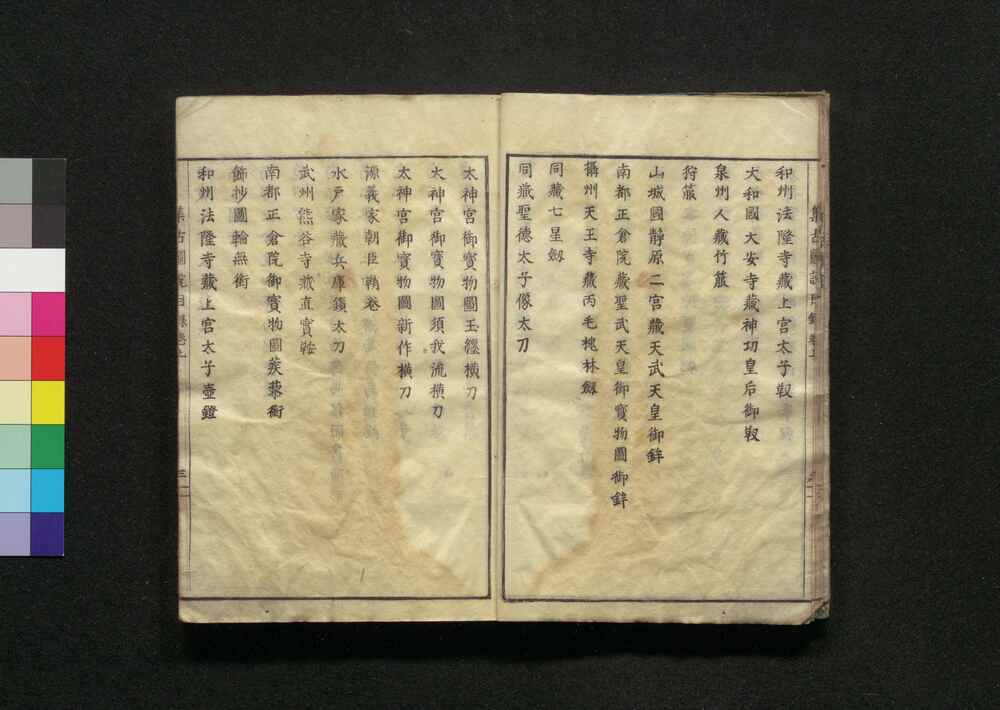 和州法隆寺藏上宮太子靫
大和國大安寺藏神功皇后御靫
泉州人藏竹箙
狩箙
山城國靜原二宮藏天武天皇御鉾
南都正倉院藏聖武天皇御寳物圖御鉾
攝州天王寺藏丙毛槐林劔
同藏七星劔
同藏聖德太子像太刀
太神宮御寳物圖玉纏横刀
太神宮御寳物圖須我流横刀
太神宮御寳物圖新作横刀
源義家朝臣鞘卷
水戸家藏兵庫鎖太刀
武州熊谷寺藏直實鞍
南都正倉院御寳物圖蒺藜銜
餝抄圖輪無銜
和州法隆寺藏上宮太子壺鐙
集古圖說目錄卷上